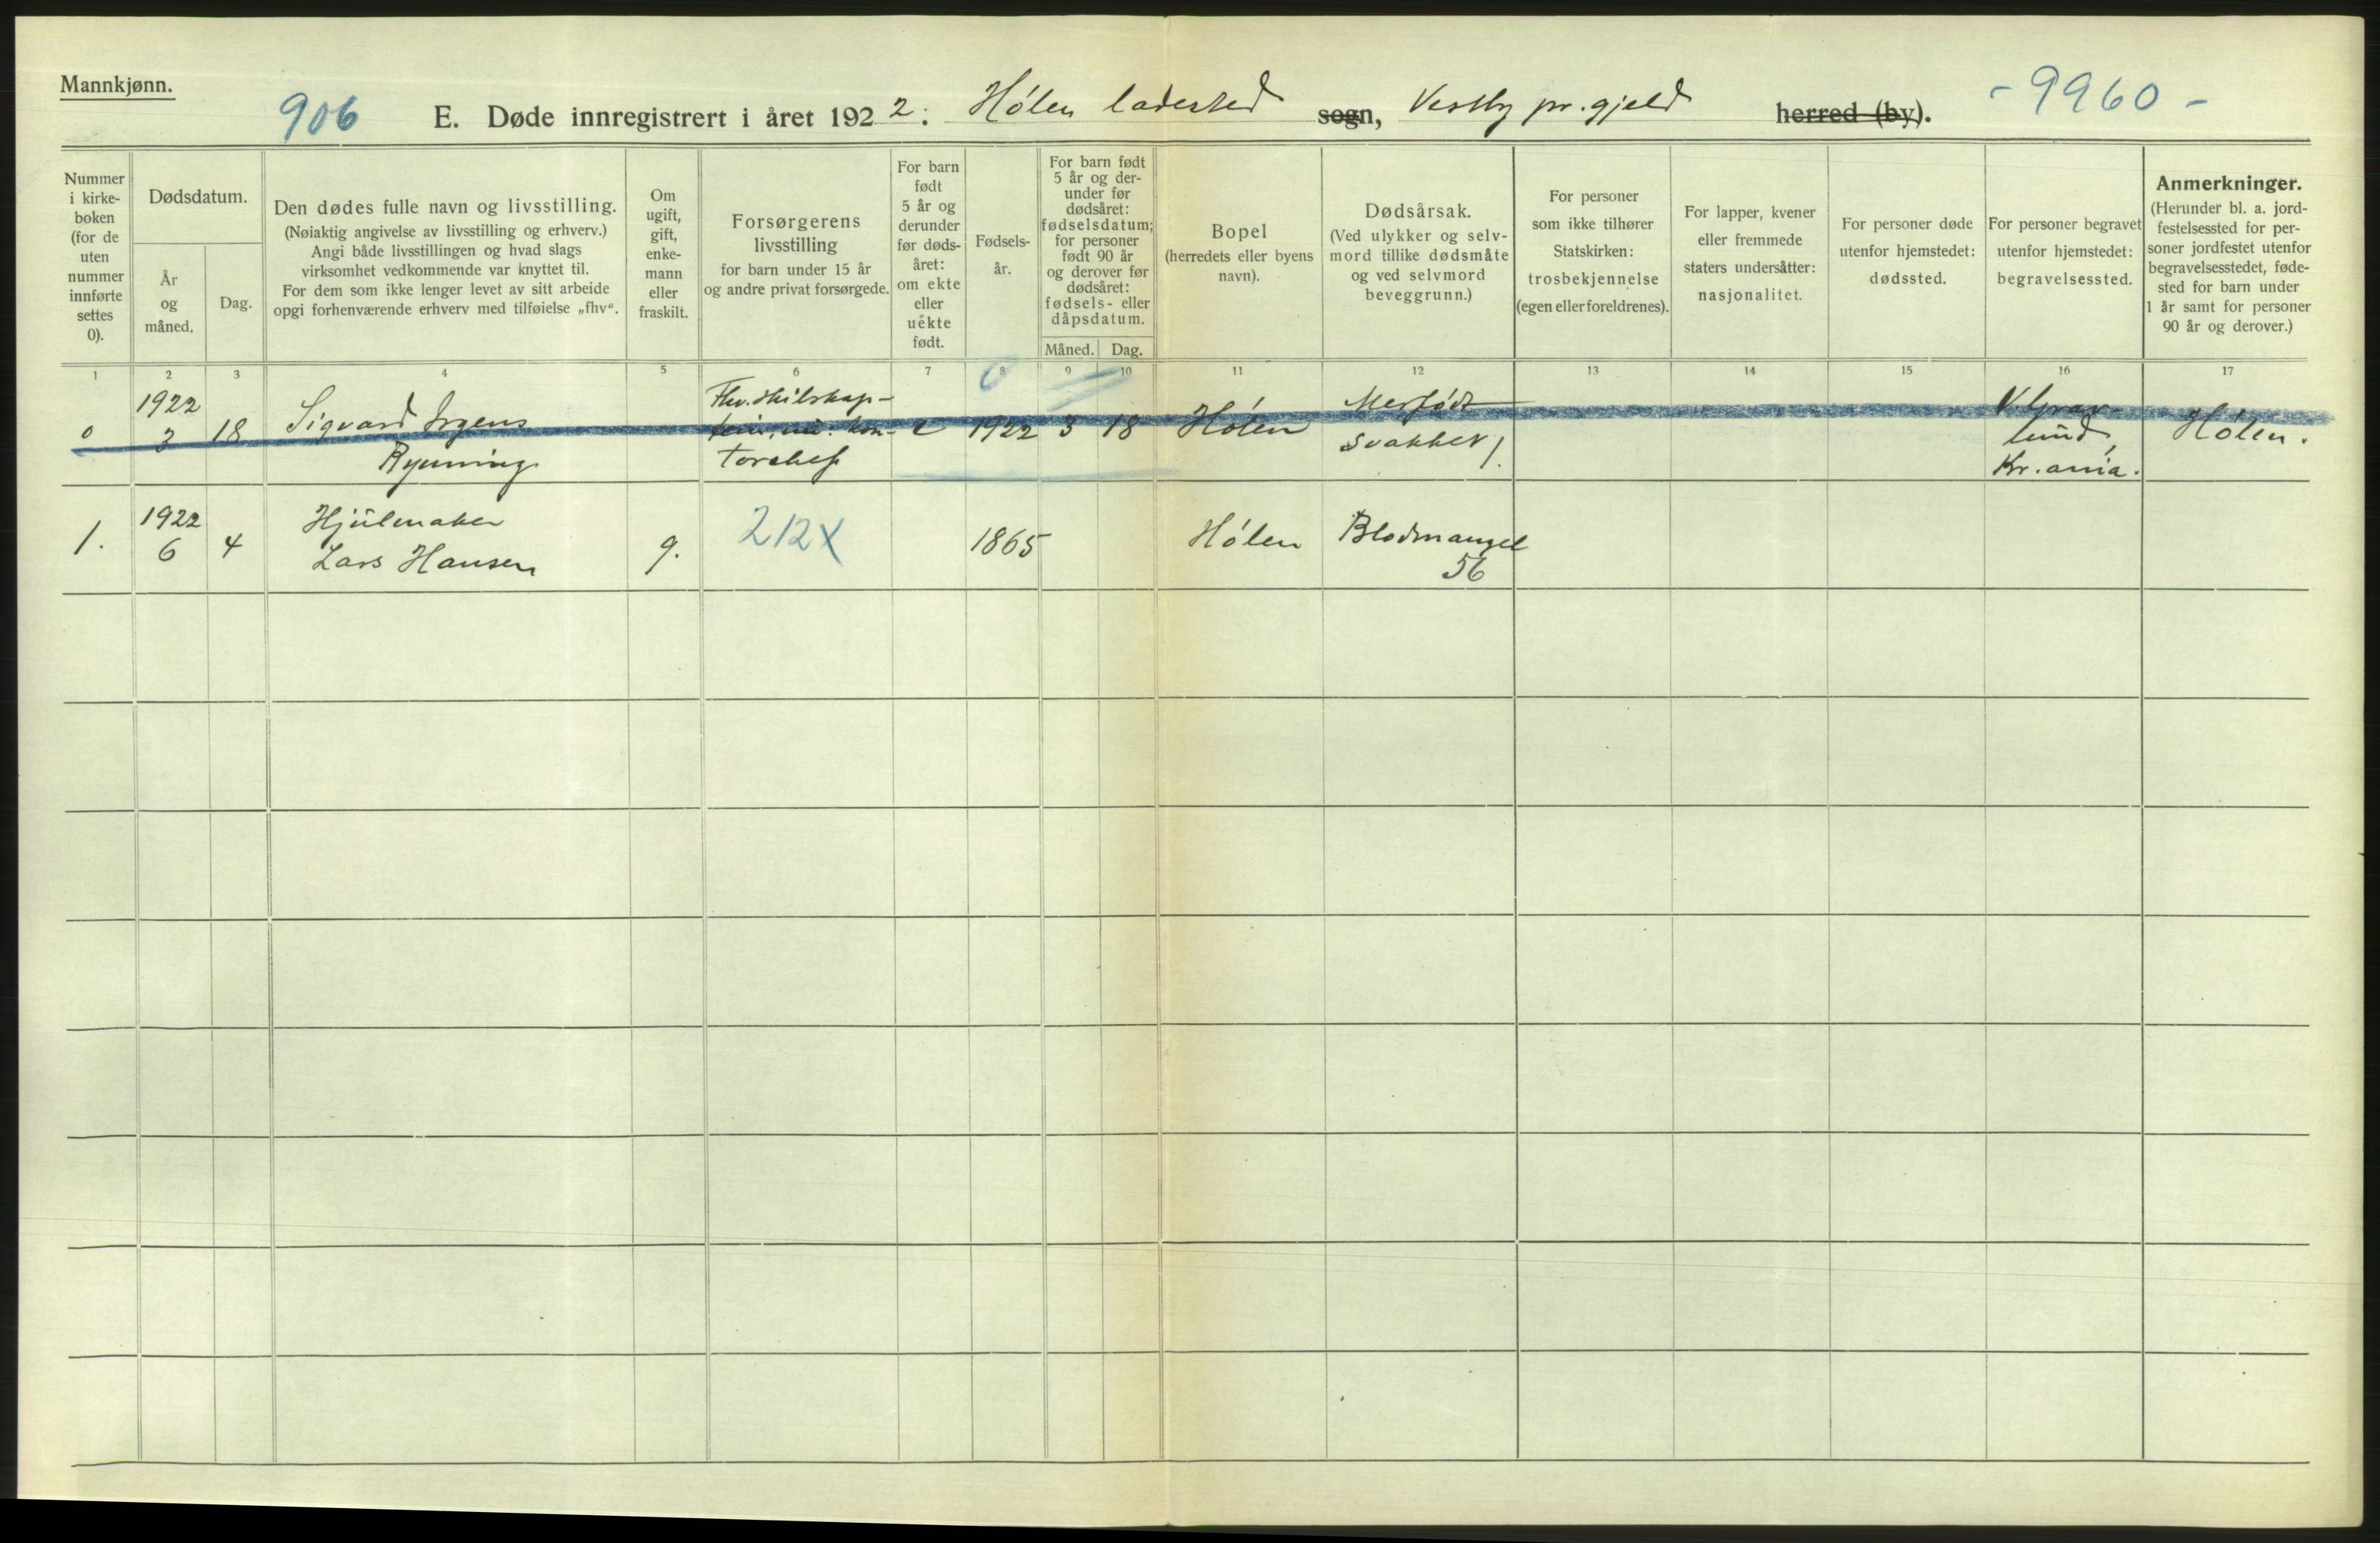 Mannkjønn.
906 E. Døde innregistrert i året 1922: Hólen ladested sogn, Vestby pr.gjeld herred (by). - 9960 -
Nummer
i kirke-
boken
(for de
uten
nummer
innførte
settes
0).
Dødsdatum.
År
og
måned.
Dag.
Den dødes fulle navn og livsstilling.
(Nøiaktig angivelse av livsstilling og erhverv.)
Angi både livsstillingen og hvad slags
virksomhet vedkommende var knyttet til.
For dem som ikke lenger levet av sitt arbeide
opgi forhenværende erhverv med tilføielse „fhv“.
Om
ugift,
gift,
enke-
mann
eller
fraskilt.
Forsørgerens
livsstilling
for barn under 15 år
og andre privat forsørgede.
For barn
født
5 år og
derunder
før døds-
året:
om ekte
eller
uekte
født.
Fødsels-
år.
For barn født
5 år og der-
under før
dødsåret:
fødselsdatum;
for personer
født 90 år
og derover før
dødsåret:
fødsels- eller
dåpsdatum.
Måned. Dag.
Bopel
(herredets eller byens
navn).
Dødsårsak.
(Ved ulykker og selv-
mord tillike dødsmåte
og ved selvmord
beveggrunn.)
For personer
som ikke tilhører
Statskirken:
trosbekjennelse
(egen eller foreldrenes).
For lapper, kvener
eller fremmede
staters undersåtter:
nasjonalitet.
For personer døde
utenfor hjemstedet:
dødssted.
For personer begravet
utenfor hjemstedet:
begravelsessted.
Anmerkninger.
(Herunder bl. a. jord-
festelsessted for per-
soner jordfestet utenfor
begravelsesstedet, føde-
sted for barn under
1 år samt for personer
90 år og derover.)
1 2 3 4 5 6 7 8 9 10 11 12 13 14 15 16 17
0
1922
3
18
Sigvard Irgens
Rynning
Fhv. skibskap-
tein, nu: kon-
torchef
e
1922
3
18
Hólen
Medfødt
svakhet
V Grav-
lund,
Kr.ania.
Hólen.
1.
1922
6
4
Hjulmaker
Lars Hansen
g.
212X
1865
Hólen
Blodmangel
56